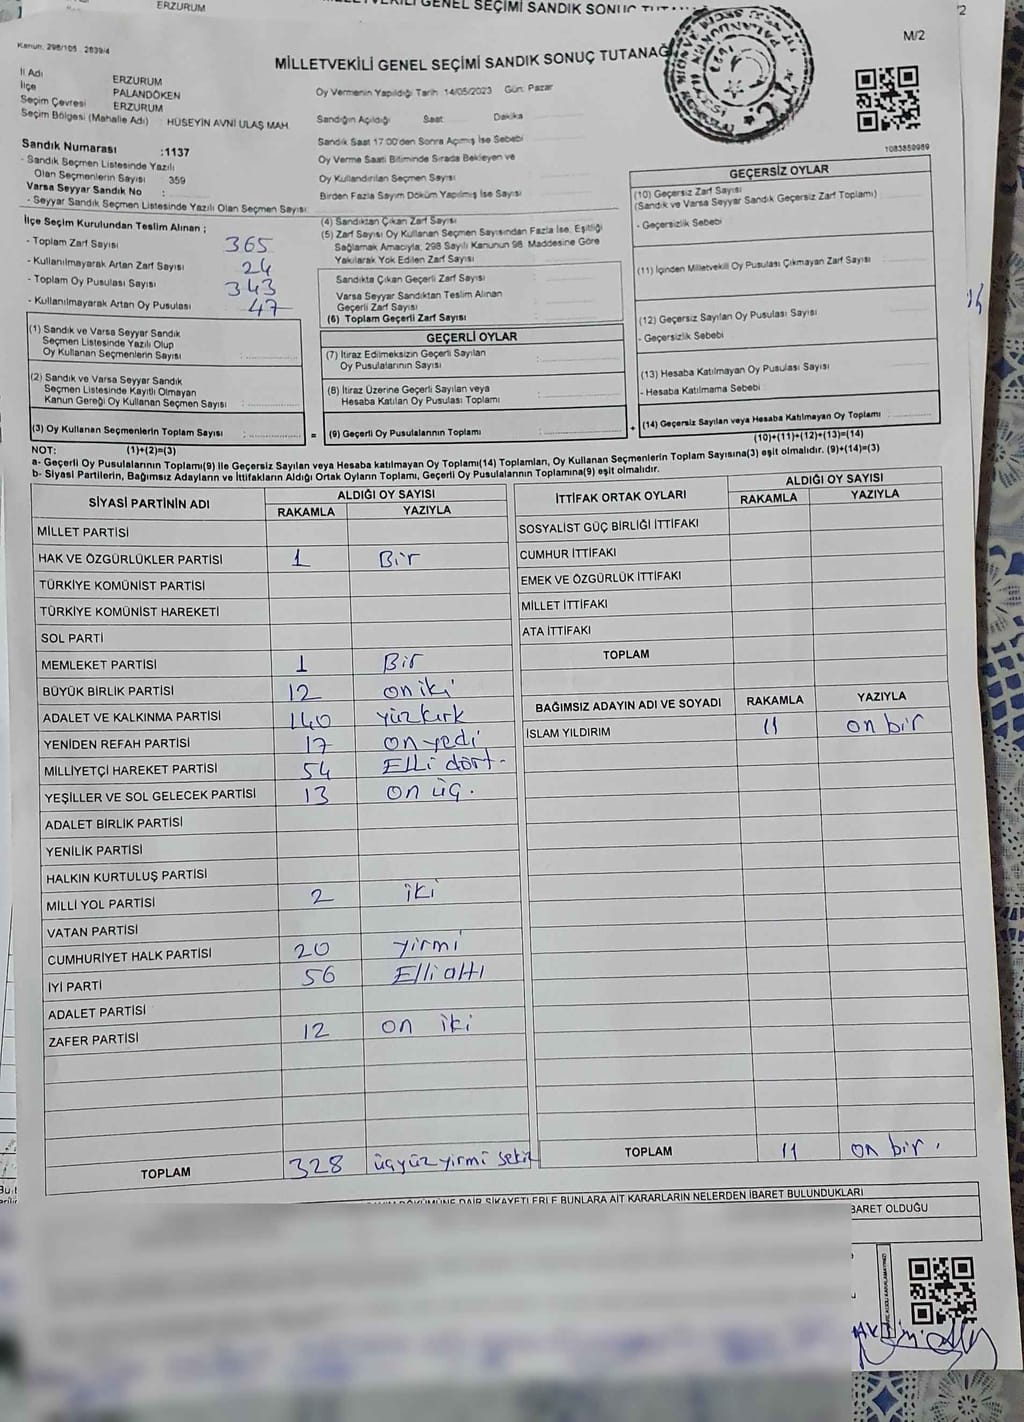 ERZURUM
MİLLETVEKİLİ GENEL SEÇİMİ SANDIK SONUÇ
M/2
Kanun: 298/105 . 2839/4
MİLLETVEKİLİ GENEL SEÇİMİ SANDIK SONUÇ TUTANAĞ
İl Adı ERZURUM
İlçe PALANDÖKEN
Seçim Çevresi ERZURUM
Seçim Bölgesi (Mahalle Adı) : HÜSEYİN AVNİ ULAŞ MAH.
Oy Vermenin Yapıldığı Tarih: 14/05/2023 Gün: Pazar
Sandığın Açıldığı Saat: Dakika
Sandık Saat 17:00'den Sonra Açılmış İse Sebebi
Oy Verme Saati Bitiminde Sırada Bekleyen ve
Oy Kullandırılan Seçmen Sayısı
Birden Fazla Sayım Döküm Yapılmış İse Sayısı
1083859989
Sandık Numarası :1137
- Sandık Seçmen Listesinde Yazılı
Olan Seçmenlerin Sayısı : 359
Varsa Seyyar Sandık No :
- Seyyar Sandık Seçmen Listesinde Yazılı Olan Seçmen Sayısı:
İlçe Seçim Kurulundan Teslim Alınan ;
- Toplam Zarf Sayısı 365
- Kullanılmayarak Artan Zarf Sayısı 24
- Toplam Oy Pusulası Sayısı 343
- Kullanılmayarak Artan Oy Pusulası 47
(1) Sandık ve Varsa Seyyar Sandık
Seçmen Listesinde Yazılı Olup
Oy Kullanan Seçmenlerin Sayısı :
(2) Sandık ve Varsa Seyyar Sandık
Seçmen Listesinde Kayıtlı Olmayan
Kanun Gereği Oy Kullanan Seçmen Sayısı :
(3) Oy Kullanan Seçmenlerin Toplam Sayısı :
(4) Sandıktan Çıkan Zarf Sayısı
(5) Zarf Sayısı Oy Kullanan Seçmen Sayısından Fazla İse, Eşitliği
Sağlamak Amacıyla; 298 Sayılı Kanunun 98. Maddesine Göre
Yakılarak Yok Edilen Zarf Sayısı
Sandıkta Çıkan Geçerli Zarf Sayısı
Varsa Seyyar Sandıktan Teslim Alınan
Geçerli Zarf Sayısı
(6) Toplam Geçerli Zarf Sayısı
GEÇERLİ OYLAR
(7) İtiraz Edilmeksizin Geçerli Sayılan
Oy Pusulalarının Sayısı :
(8) İtiraz Üzerine Geçerli Sayılan veya
Hesaba Katılan Oy Pusulası Toplamı :
= (9) Geçerli Oy Pusulalarının Toplamı :
GEÇERSİZ OYLAR
(10) Geçersiz Zarf Sayısı
(Sandık ve Varsa Seyyar Sandık Geçersiz Zarf Toplamı)
- Geçersizlik Sebebi :
(11) İçinden Milletvekili Oy Pusulası Çıkmayan Zarf Sayısı
(12) Geçersiz Sayılan Oy Pusulası Sayısı
- Geçersizlik Sebebi
(13) Hesaba Katılmayan Oy Pusulası Sayısı
- Hesaba Katılmama Sebebi :
+ (14) Geçersiz Sayılan veya Hesaba Katılmayan Oy Toplamı :
NOT: (1)+(2)=(3)
(10)+(11)+(12)+(13)=(14)
a- Geçerli Oy Pusulalarının Toplamı(9) ile Geçersiz Sayılan veya Hesaba katılmayan Oy Toplamı(14) Toplamları, Oy Kullanan Seçmenlerin Toplam Sayısına(3) eşit olmalıdır. (9)+(14)=(3)
b- Siyasi Partilerin, Bağımsız Adayların ve İttifakların Aldığı Ortak Oyların Toplamı, Geçerli Oy Pusulalarının Toplamına(9) eşit olmalıdır.
SİYASİ PARTİNİN ADI ALDIĞI OY SAYISI
RAKAMLA YAZIYLA
MİLLET PARTİSİ
HAK VE ÖZGÜRLÜKLER PARTİSİ 1 Bir
TÜRKİYE KOMÜNİST PARTİSİ
TÜRKİYE KOMÜNİST HAREKETİ
SOL PARTİ
MEMLEKET PARTİSİ 1 Bir
BÜYÜK BİRLİK PARTİSİ 12 on iki
ADALET VE KALKINMA PARTİSİ 140 yüzkırk
YENİDEN REFAH PARTİSİ 17 on yedi
MİLLİYETÇİ HAREKET PARTİSİ 54 Elli dört-
YEŞİLLER VE SOL GELECEK PARTİSİ 13 on üç.
ADALET BİRLİK PARTİSİ
YENİLİK PARTİSİ
HALKIN KURTULUŞ PARTİSİ
MİLLİ YOL PARTİSİ 2 iki
VATAN PARTİSİ
CUMHURİYET HALK PARTİSİ 20 yirmi
İYİ PARTİ 56 Elli altı
ADALET PARTİSİ
ZAFER PARTİSİ 12 on iki
TOPLAM 328 üçyüz yirmi sekiz
İTTİFAK ORTAK OYLARI ALDIĞI OY SAYISI
RAKAMLA YAZIYLA
SOSYALİST GÜÇ BİRLİĞİ İTTİFAKI
CUMHUR İTTİFAKI
EMEK VE ÖZGÜRLÜK İTTİFAKI
MİLLET İTTİFAKI
ATA İTTİFAKI
TOPLAM
BAĞIMSIZ ADAYIN ADI VE SOYADI RAKAMLA YAZIYLA
İSLAM YILDIRIM 11 on bir
TOPLAM 11 on bir.
DÖKÜMÜNE DAİR ŞİKAYETLERLE BUNLARA AİT KARARLARIN NELERDEN İBARET BULUNDUKLARI
BARET OLDUĞU